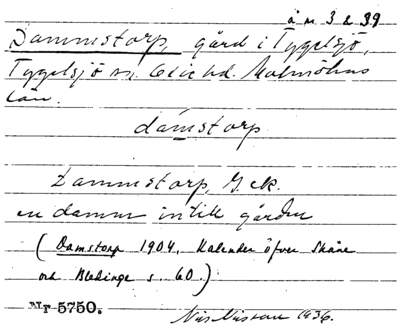 å nr 3 & 39
Dammstorp, gård i Tygelsjö,
Tygelsjö sn. Oxie hd. Malmöhus
län.
damstorp
Dammstorp, Gek.
en damm intill gården
(Damstorp 1904. Kalender öfver Skåne
och Blekinge s. 60.)
Nr 5750.
Nils Nilsson 1936.